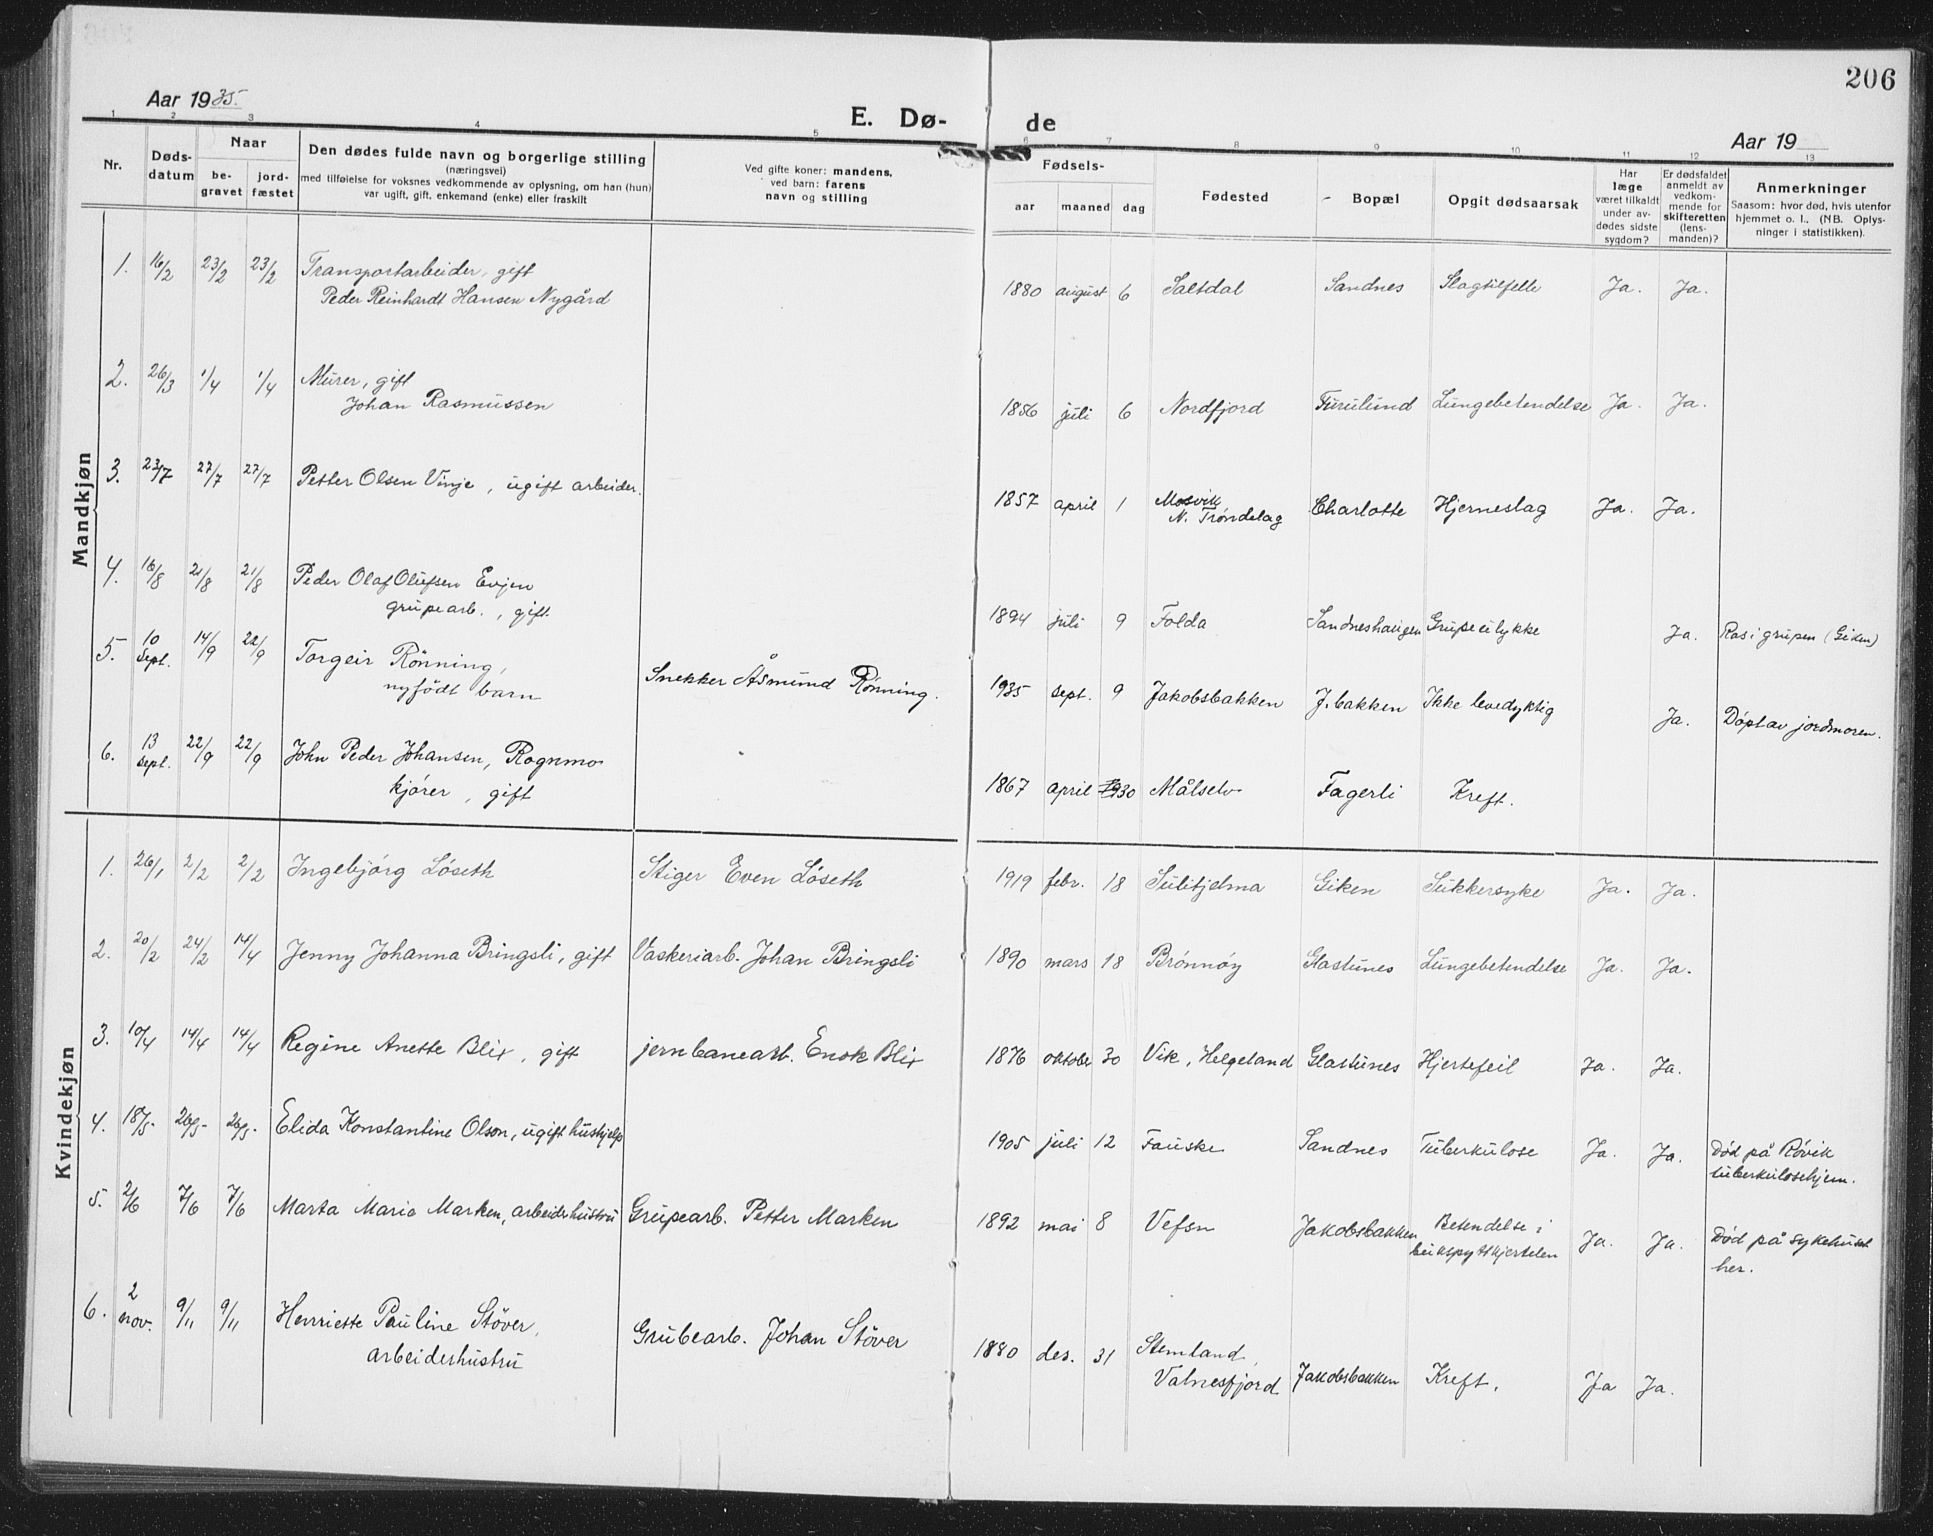 206
Aar 1935.
E. Dø-
de
Aar 19
1 2 3 4 5 6 7 8 9 10 11 12 13
Nr.
Døds-
datum
Naar
be-
gravet
jord-
fæstet
Den dødes fulde navn og borgerlige stilling
(næringsvei)
med tilføielse for voksnes vedkommende av oplysning, om han (hun)
var ugift, gift, enkemand (enke) eller fraskilt
Ved gifte koner: mandens,
ved barn: farens
navn og stilling
Fødsels-
aar maaned dag
Fødested
Bopæl
Opgit dødsaarsak
Har
læge
været tilkaldt
under av-
dødes sidste
sygdom?
Er dødsfaldet
anmeldt av
vedkom-
mende for
skifteretten
(lens-
manden)?
Anmerkninger
Saasom: hvor død, hvis utenfor
hjemmet o. l.. (NB. Oplys-
ninger i statistikken).
Mandkjøn
1. 16/2 23/2 23/2 Transportarbeider, gift
Peder Reinhardt Hansen Nygård
1880 august 6 Saltdal Sandnes Slagtilfelle Ja. Ja.
2. 26/3 1/4 1/4 Murer, gift
Johan Rasmussen
1856 juli 6 Nordfjord Furulund Lungebetendelse Ja. Ja.
3. 23/7 27/7 27/7 Petter Olsen Vinje, ugift arbeider.
1857 april 1 Mosvik
N. Trøndelag Charlotte Hjerneslag Ja. Ja.
4. 16/8 21/8 21/8 Peder Olaf Olufsen Evjen
grupearb., gift.
1894 juli 9 Folda Sandneshaugen Grupeulykke Ja. Ras i grupen (Giken)
5. 10
Sept. 14/9 22/9 Torgeir Rönning,
nyfödt barn
Snekker Åsmund Rönning.
1935 sept. 9 Jakobsbakken J.bakken Ikke levedyktig Ja. Döpt av jordmoren.
6. 13
Sept. 22/9 22/9 John Peder Johansen, Rognmo
kjører, gift
1867 april 30 Målselv Fagerli Kreft.
Kvindekjøn
1. 26/1 2/2 2/2 Ingebjörg Löseth Stiger Even Löseth
1919 febr. 18 Sulitjelma Giken Sukkersyke Ja. Ja.
2. 20/2 24/2 14/4 Jenny Johanna Bringsli, gift Vaskeriarb. Johan Bringsli
1890 mars 18 Brönnöy Glastunes Lungebetendelse Ja. Ja.
3. 10/4 14/4 14/4 Regine Anette Blix, gift jernbanearb. Enok Blix
1876 oktober 30 Vik, Helgeland Glastunes Hjertefeil Ja. Ja.
4. 18/5 26/5 26/5 Elida Konstantine Olson, ugift hushjelp
1905 juli 12 Fauske Sandnes Tuberkulose Ja. Ja. Död på Rövik
tuberkulosehjem.
5. 2/6 7/6 7/6 Marta Marie Marken, arbeiderhustru Grupearb. Petter Marken
1892 mai 8 Vefsn Jakobsbakken Betendelse i
bukspyttkjertelen Ja. Ja. Död på sykehuset
her.
6. 2
nov. 9/11 9/11 Henriette Pauline Stöver,
arbeiderhustru
Grubearb. Johan Stöver
1880 des. 31 Stemland,
Valnesfjord Jakobsbakken Kreft. Ja Ja.